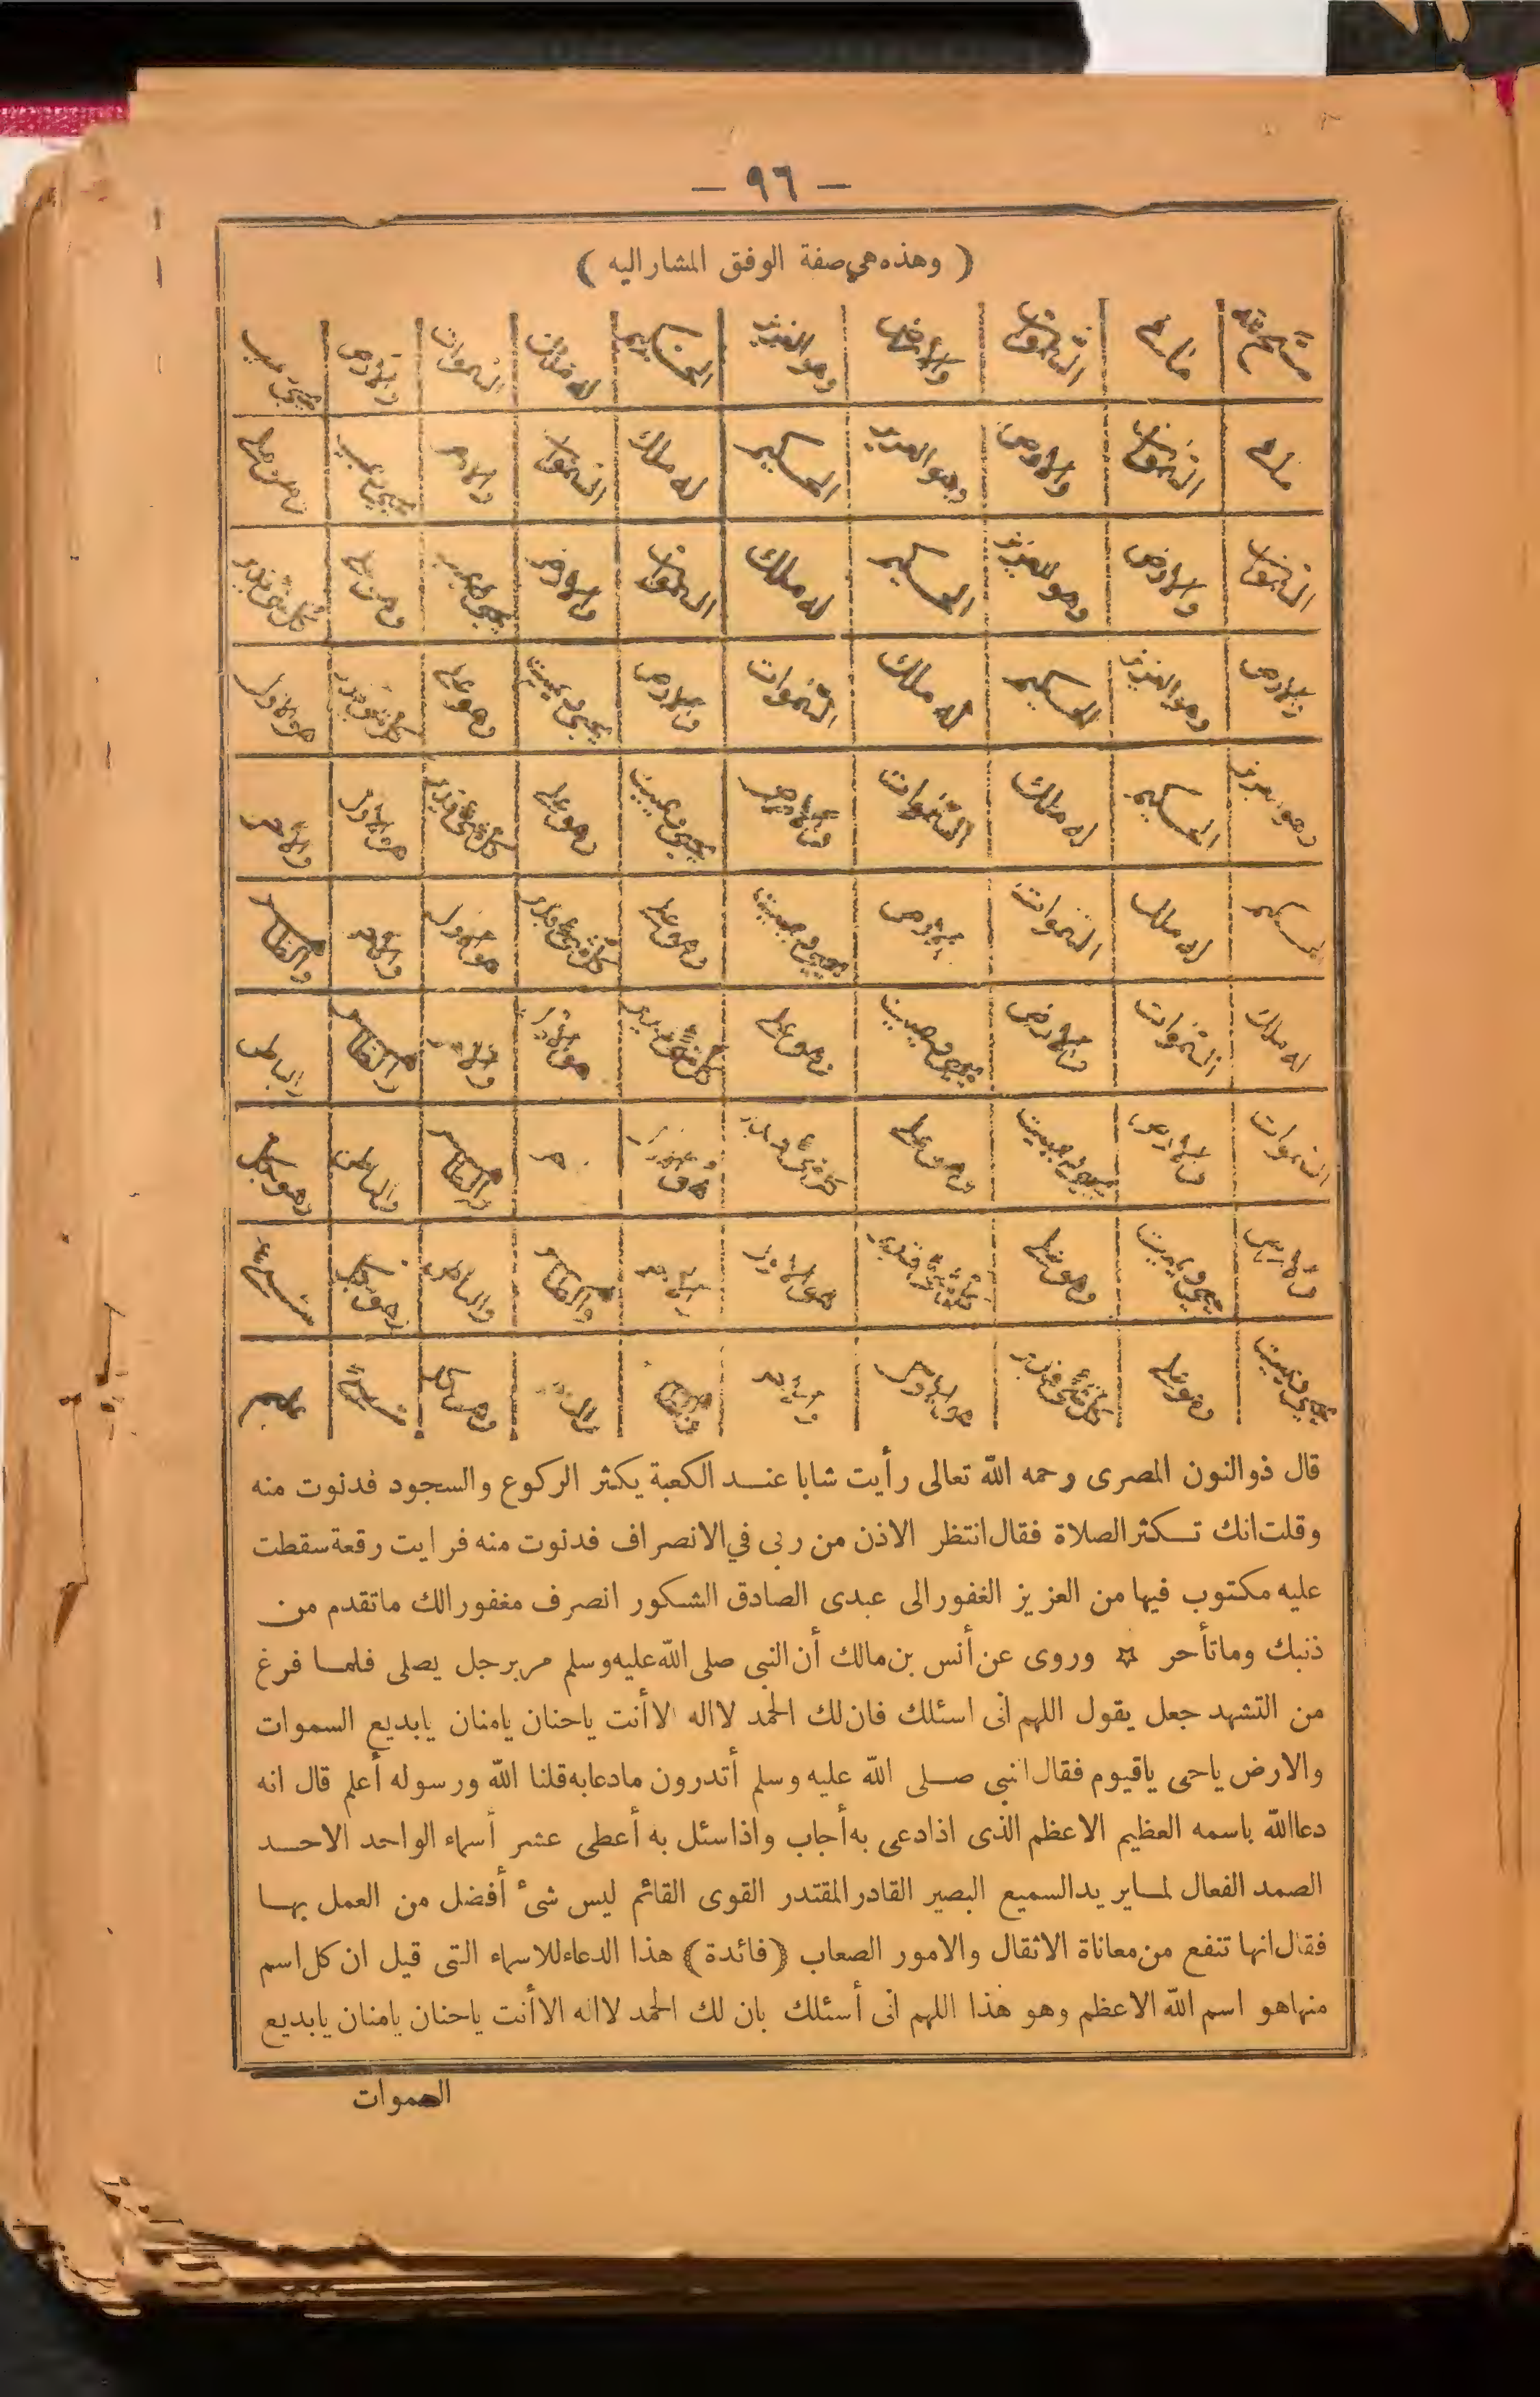 — ٩٦ —
( وهذه هي صفة الوفق المشار اليه )
سبح لله | ما فى | السموات | والارض | وهو العزيز | الحكيم | له ملك | السموات | والارض | يحيى ويميت
ما فى | السموات | والارض | وهو العزيز | الحكيم | له ملك | السموات | والارض | يحيى ويميت | وهو على
السموات | والارض | وهو العزيز | الحكيم | له ملك | السموات | والارض | يحيى ويميت | وهو على | كل شئ قدير
والارض | وهو العزيز | الحكيم | له ملك | السموات | والارض | يحيى ويميت | وهو على | كل شئ قدير | هو الاول
وهو العزيز | الحكيم | له ملك | السموات | والارض | يحيى ويميت | وهو على | كل شئ قدير | هو الاول | والاخر
الحكيم | له ملك | السموات | والارض | يحيى ويميت | وهو على | كل شئ قدير | هو الاول | والاخر | والظاهر
له ملك | السموات | والارض | يحيى ويميت | وهو على | كل شئ قدير | هو الاول | والاخر | والظاهر | والباطن
السموات | والارض | يحيى ويميت | وهو على | كل شئ قدير | هو الاول | والظاهر | والباطن | وهو بكل
والارض | يحيى ويميت | وهو على | كل شئ قدير | هو الاول | والاخر | والظاهر | والباطن | وهو بكل | شئ
يحيى ويميت | وهو على | كل شئ قدير | هو الاول | والاخر | والظاهر | وهو بكل | شئ | عليم
قال ذوالنون المصرى رحمه الله تعالى رأيت شابا عنــد الكعبة يكثر الركوع والسجود فدنوت منه
وقلت انك تــكثر الصلاة فقال انتظر الاذن من ربى في الانصراف فدنوت منه فرايت رقعة سقطت
عليه مكتوب فيها من العزيز الغفور الى عبدى الصادق الشكور انصرف مغفورا لك ماتقدم من
ذنبك وماتأخر ✡ وروى عن أنس بن مالك أن النبى صلى الله عليه وسلم مر برجل يصلى فلمـا فرغ
من التشهد جعل يقول اللهم انى اسئلك فان لك الحمد لااله الاأنت ياحنان يامنان يابديع السموات
والارض ياحى ياقيوم فقال النبى صــلى الله عليه وسلم أتدرون مادعابه قلنا الله ورسوله أعلم قال انه
دعاالله باسمه العظيم الاعظم الذى اذادعى به أجاب واذاسئل به أعطى عشر أسماء الواحد الاحــد
الصمد الفعال لمـايريد السميع البصير القادر المقتدر القوى القائم ليس شئ أفضل من العمل بهـا
فقال انها تنفع من معاناة الاثقال والامور الصعاب (فائدة) هذا الدعاء للاسماء التى قيل ان كل اسم
منهاهو اسم الله الاعظم وهو هذا اللهم انى أسئلك بان لك الحمد لااله الاأنت ياحنان يامنان يابديع
السموات